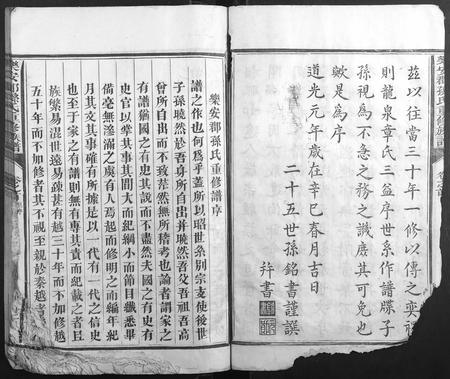 樂安郡孫氏重修族譜
茲以往當三十年一修以傳之奕禩
則龍泉章氏三益序世系作譜牒子
孫視為不急之務之譏庶其可免也
歟是為序
道光元年歲在辛巳春月吉日
二十五世孫銘書謹譔
幷書
樂安郡孫氏重修譜序
譜之作也何為乎蓋所以昭世系別宗支使後世
子孫曉然於吾身所自出并曉然吾父吾祖吾高
曾所自出而不致茫然無所稽考也論者謂家之
有譜猶國之有史其說而不盡然夫國之有史有
史官以掌其事其間大而紀綱小而節目纖悉畢
備毫無滲漏之虞有人焉起而修明之而編年紀
月其文其事確有所據是以一代有一代之信史
也至於家之有譜則無有專其責而紀載之者且
族繁易混世遠易疎甚有越三十年而不加修越
五十年而不加修者其不視至親於秦越者
樂安郡孫氏重修族譜